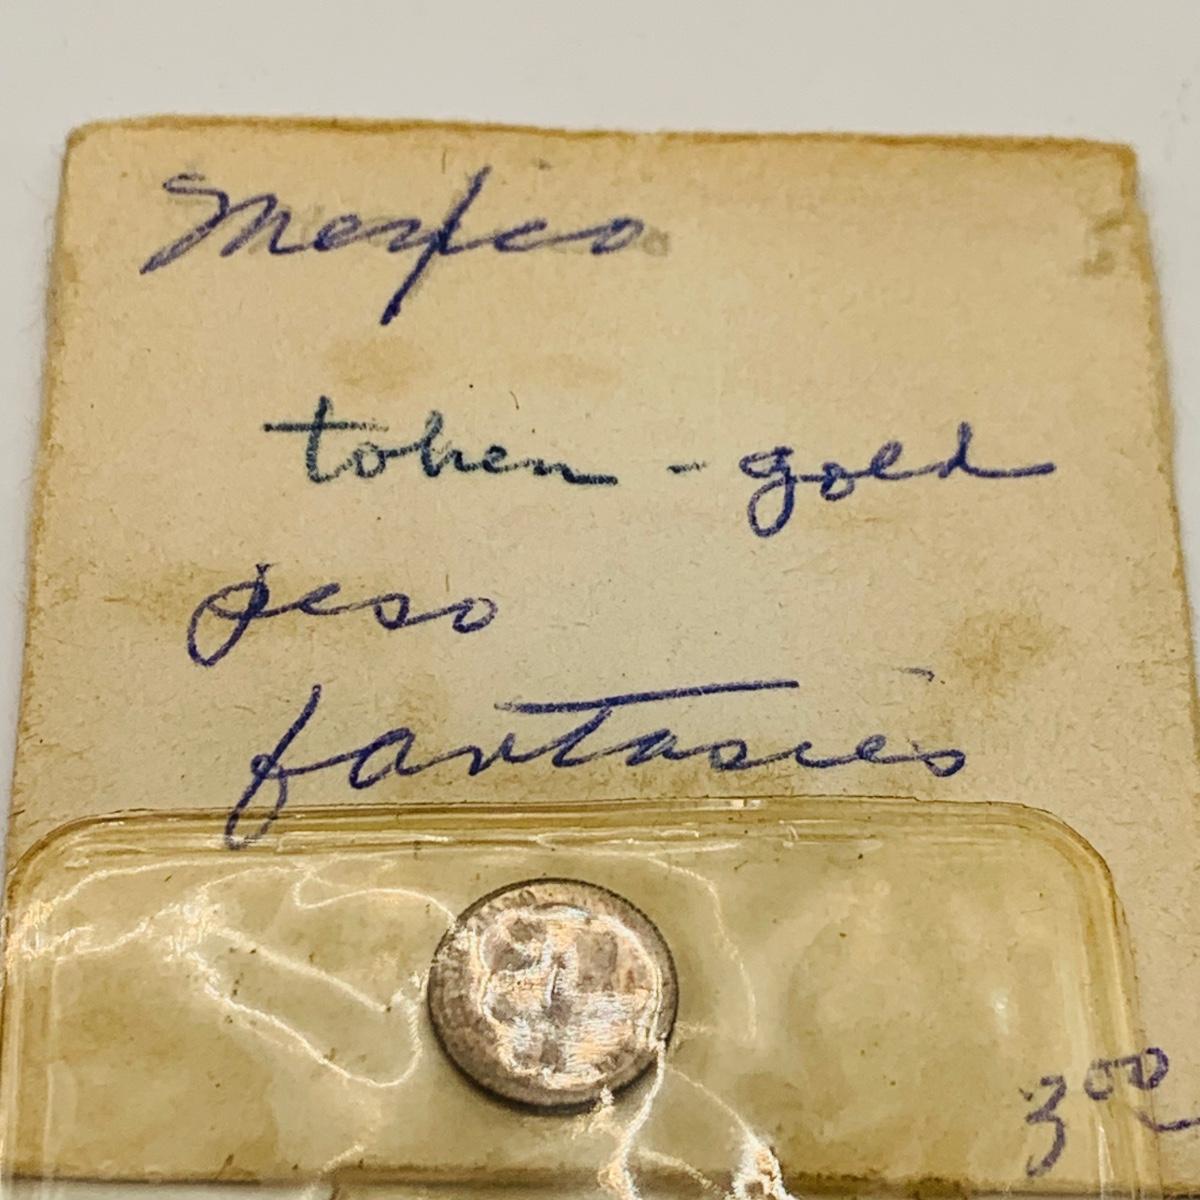 Mexico
token - gold
peso
fantasies
3 00